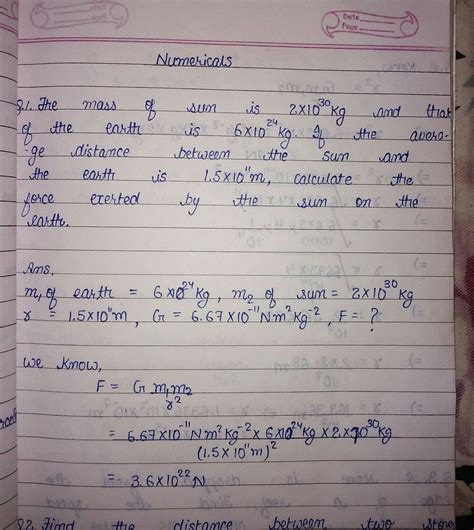 Date
Page
Numericals
Q.1. The mass of sun is 2×10³⁰kg and that
of the earth is 6×10²⁴kg. If the avera-
-ge distance between the sun and
the earth is 1.5×10¹¹m, calculate the
force exerted by the sun on the
earth.
Ans.
m₁ of earth = 6×10²⁴kg, m₂ of sun = 2×10³⁰kg
r = 1.5×10¹¹m, G = 6.67×10⁻¹¹Nm²kg⁻², F = ?
We know,
F = G m₁m₂
r²
= 6.67×10⁻¹¹Nm²kg⁻²×6×10²⁴kg×2×10³⁰kg
(1.5×10¹¹m)²
= 3.6×10²²N
Q2. Find the distance between two stone